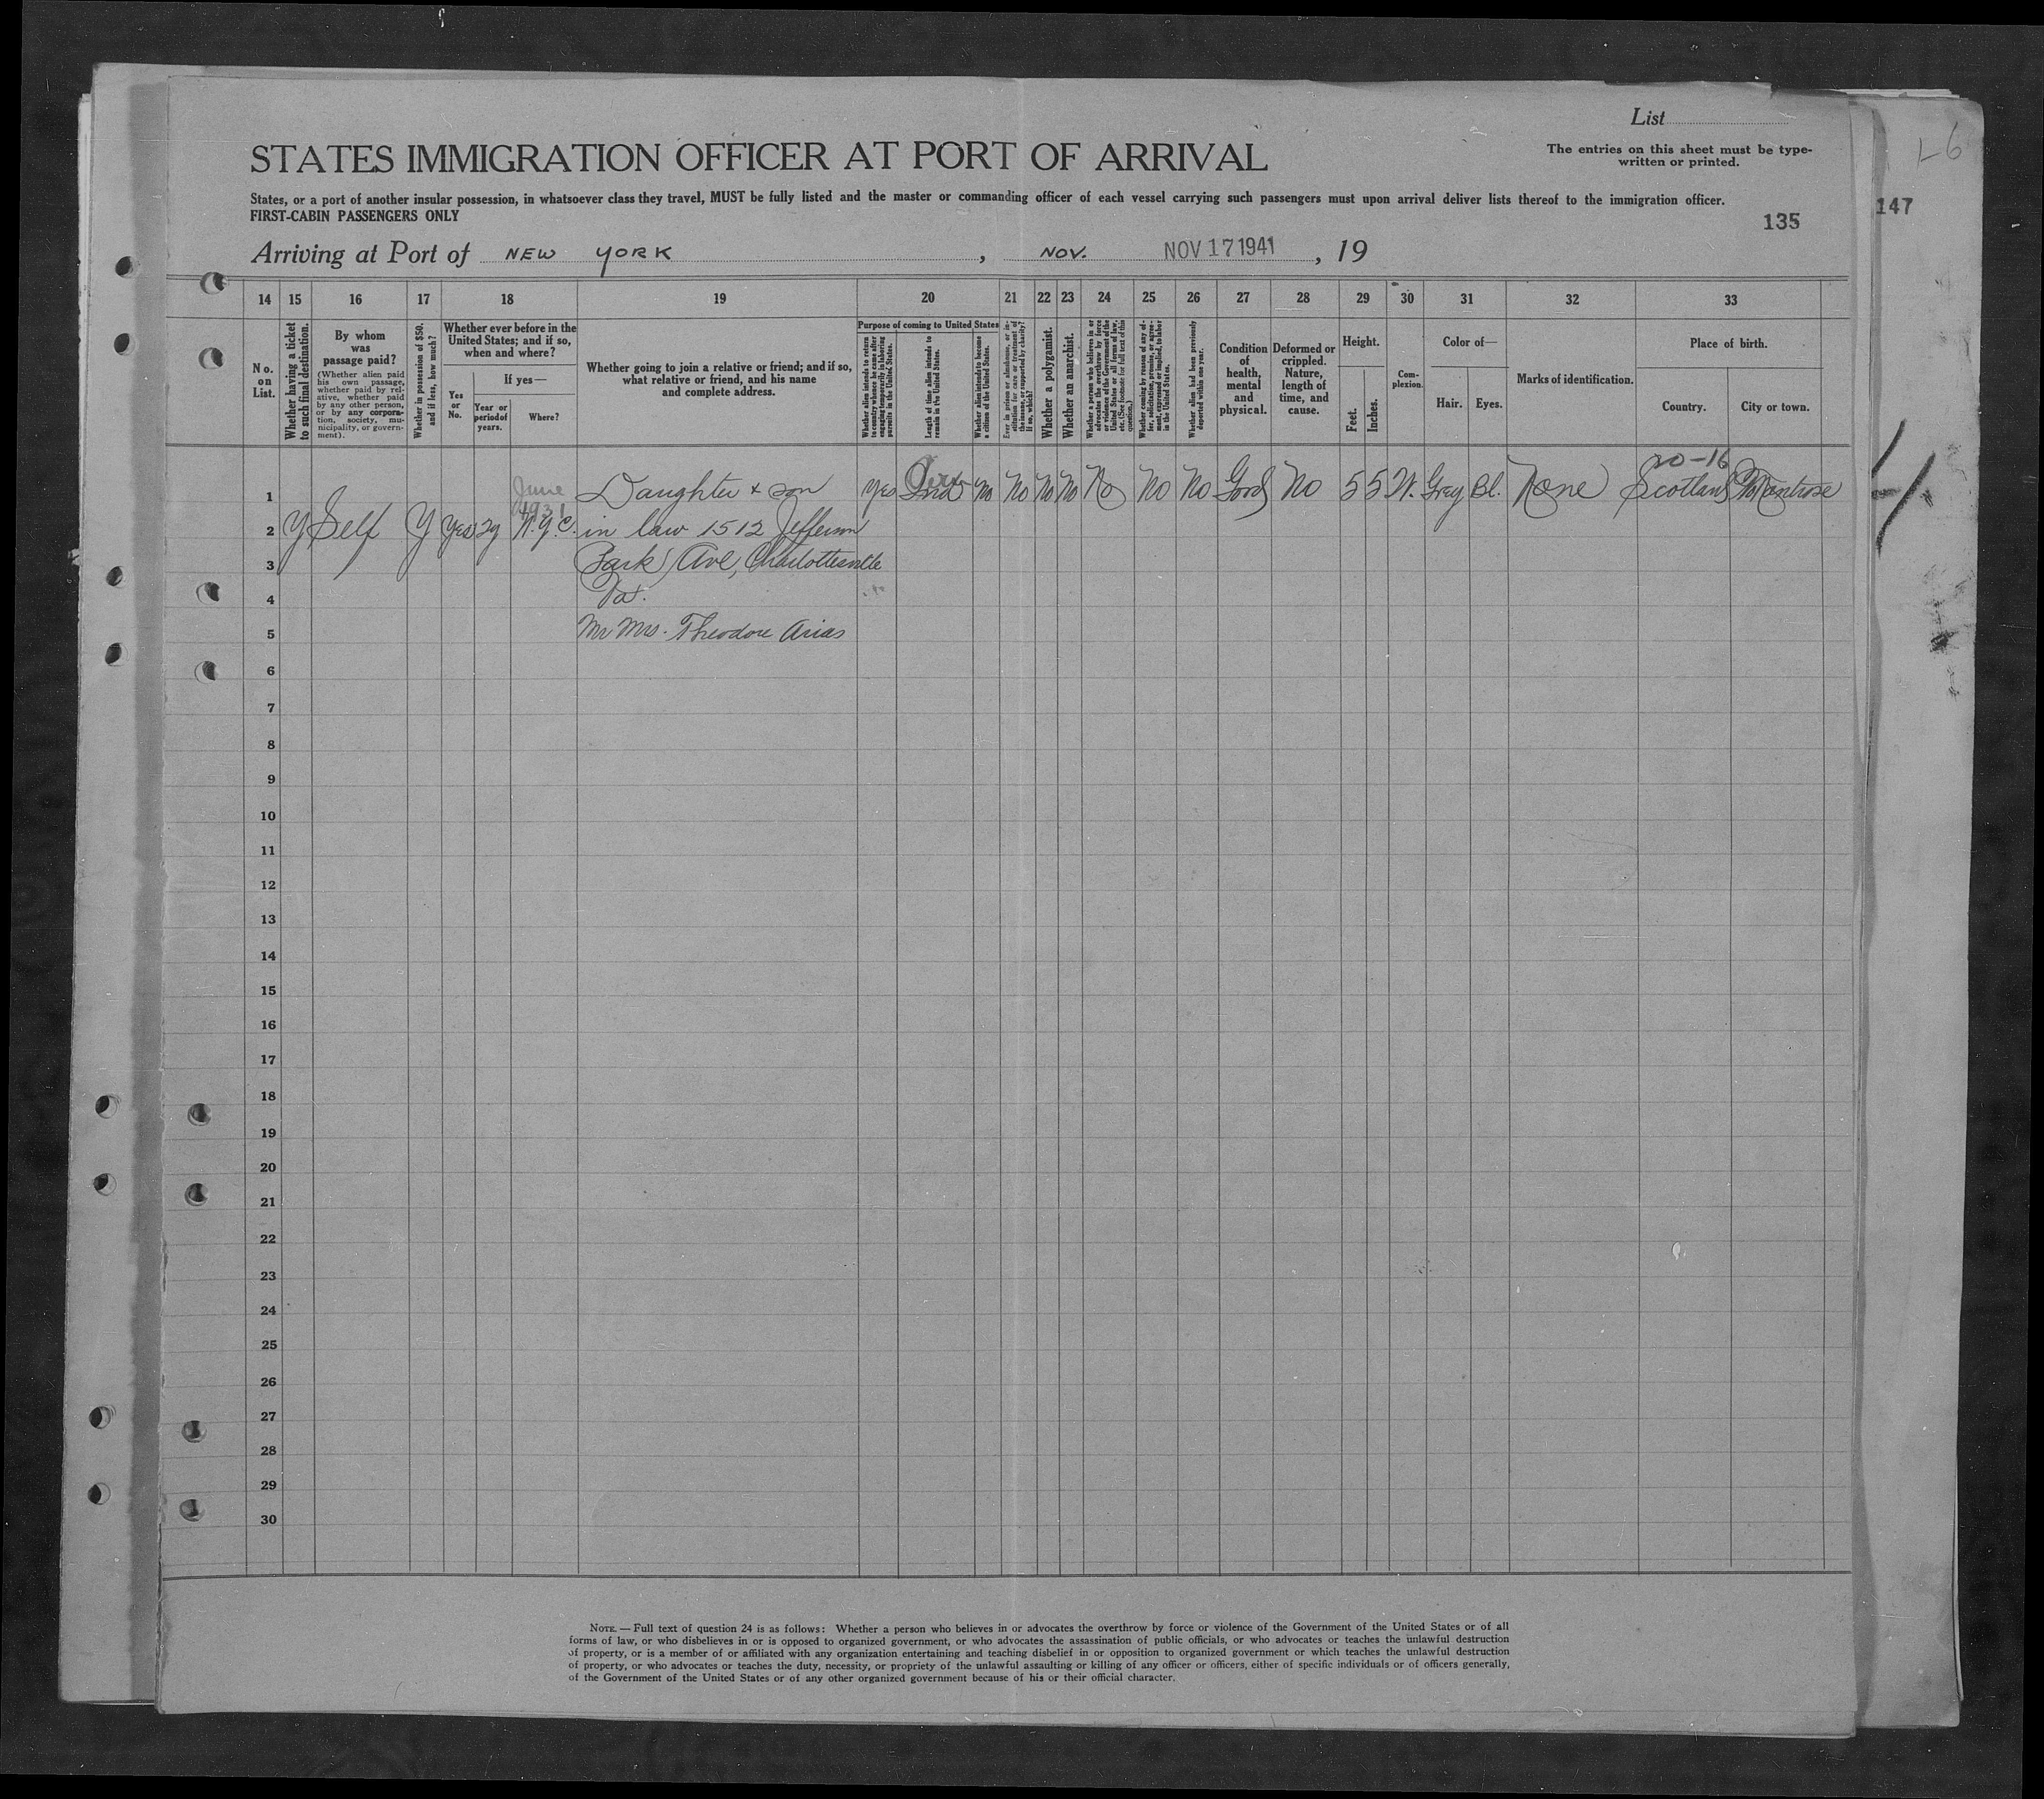 List
STATES IMMIGRATION OFFICER AT PORT OF ARRIVAL
The entries on this sheet must be type-
written or printed.
L6
States, or a port of another insular possession, in whatsoever class they travel, MUST be fully listed and the master or commanding officer of each vessel carrying such passengers must upon arrival deliver lists thereof to the immigration officer.
FIRST-CABIN PASSENGERS ONLY
135
147
Arriving at Port of NEW YORK, NOV. NOV 17 1941, 19
14 15 16 17 18 19 20 21 22 23 24 25 26 27 28 29 30 31 32 33
No. on List.
Whether having a ticket to such final destination.
By whom was passage paid?
(Whether alien paid his own passage, whether paid by relative, whether paid by any other person, or by any corporation, society, municipality, or government).
Whether in possession of $50, and if less, how much?
Whether ever before in the United States; and if so, when and where?
Yes or No.
If yes—
Year or period of years.
Where?
Whether going to join a relative or friend; and if so, what relative or friend, and his name and complete address.
Purpose of coming to United States
Whether alien intends to return to country whence he came after engaging temporarily in laboring pursuits in the United States.
Length of time alien intends to remain in the United States.
Whether alien intends to become a citizen of the United States.
Ever in prison or almshouse, or institution for care or treatment of the insane, or supported by charity? If so, which?
Whether a polygamist.
Whether an anarchist.
Whether a person who believes in or advocates the overthrow by force or violence of the Government of the United States or all forms of law, etc. (See footnote for full text of this question.)
Whether coming by reason of any offer, solicitation, promise, or agreement, expressed or implied, to labor in the United States.
Whether alien had been previously deported within one year.
Condition of health, mental and physical.
Deformed or crippled. Nature, length of time, and cause.
Height.
Feet. Inches.
Complexion.
Color of—
Hair. Eyes.
Marks of identification.
Place of birth.
Country. City or town.
20-16
June
1 Daughter & son Yes Ind No No No No No No No Good No 5 5 W. Grey Bl. None Scotland Montrose
1931
2 Y Self Y Yes N.Y.C. in law 1512 Jefferson
3 Park Ave, Charlottesville
4 Va.
5 Mr Mrs. Theodore Arias
6
7
8
9
10
11
12
13
14
15
16
17
18
19
20
21
22
23
24
25
26
27
28
29
30
NOTE.—Full text of question 24 is as follows: Whether a person who believes in or advocates the overthrow by force or violence of the Government of the United States or of all
forms of law, or who disbelieves in or is opposed to organized government, or who advocates the assassination of public officials, or who advocates or teaches the unlawful destruction
of property, or is a member of or affiliated with any organization entertaining and teaching disbelief in or opposition to organized government or which teaches the unlawful destruction
of property, or who advocates or teaches the duty, necessity, or propriety of the unlawful assaulting or killing of any officer or officers, either of specific individuals or of officers generally,
of the Government of the United States or of any other organized government because of his or their official character.